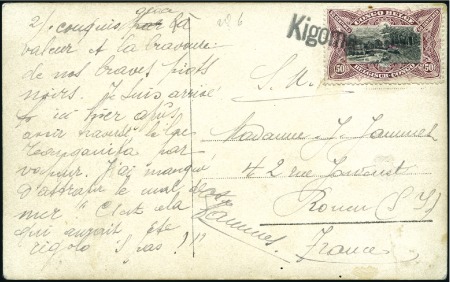 2/. conquis par la
valeur et la bravoure
de nos braves piots
noirs. Je suis arrivé
ici hier après
avoir traversé le lac
Tanganika par
vapeur. J'ai manqué
d'attraper le mal de
mer". C'est cela
qui aurait été
rigolo "s pas!!!
Kigom
CONGO BELGE
50 50
BELGISCH-CONGO
S. M.
Madame J. Jammes
42 rue
Rouen (S. I)
France
Jammes.